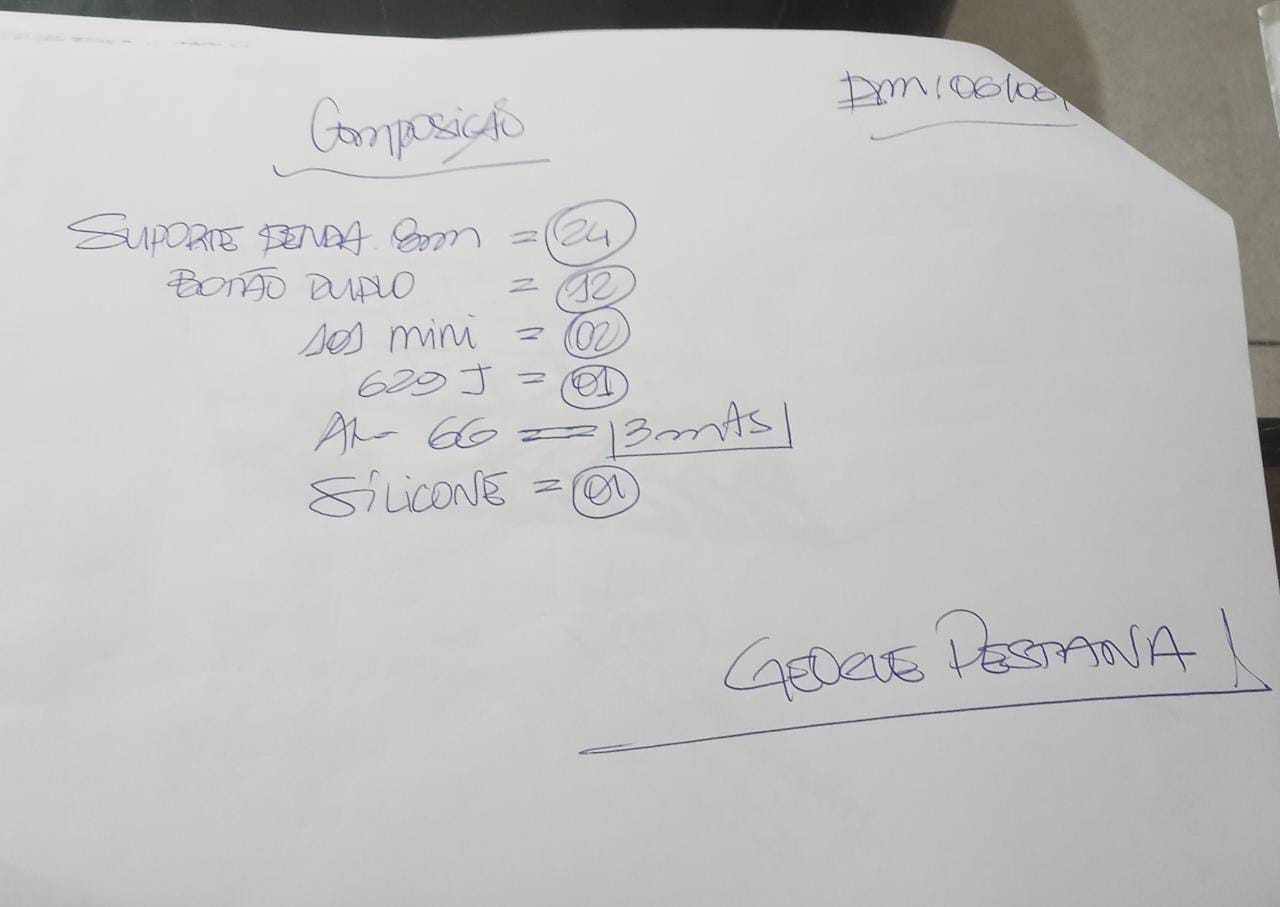 Composição
DM: 06/06/
SUPORTE FENDA 8mm = 24
BOTÃO DUPLO = 12
101 mini = 02
620 J = 01
AL- 66 = 3mts
SILICONE = 01
PESTANA